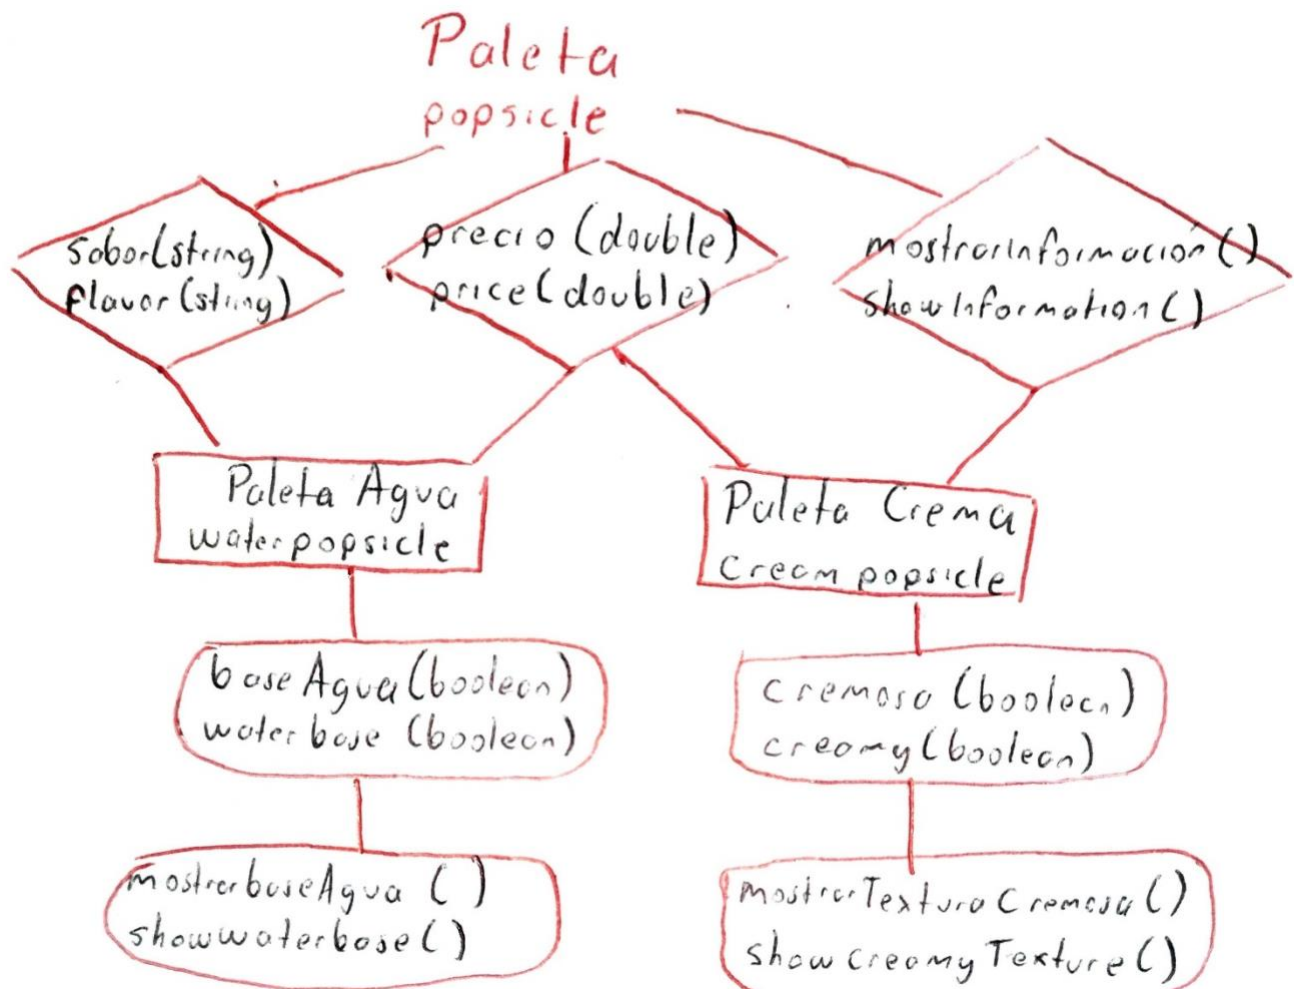 Paleta
popsicle
sabor(string)
flavor(string)
precio (double)
price(double)
mostrarInformación()
showInformation()
Paleta Agua
waterpopsicle
Paleta Crema
Cream popsicle
baseAgua(boolean)
waterbase (boolean)
cremosa (boolean)
creamy(boolean)
mostrarbaseAgua ()
showwaterbase()
mostrarTexturaCremosa()
showcreamyTexture()